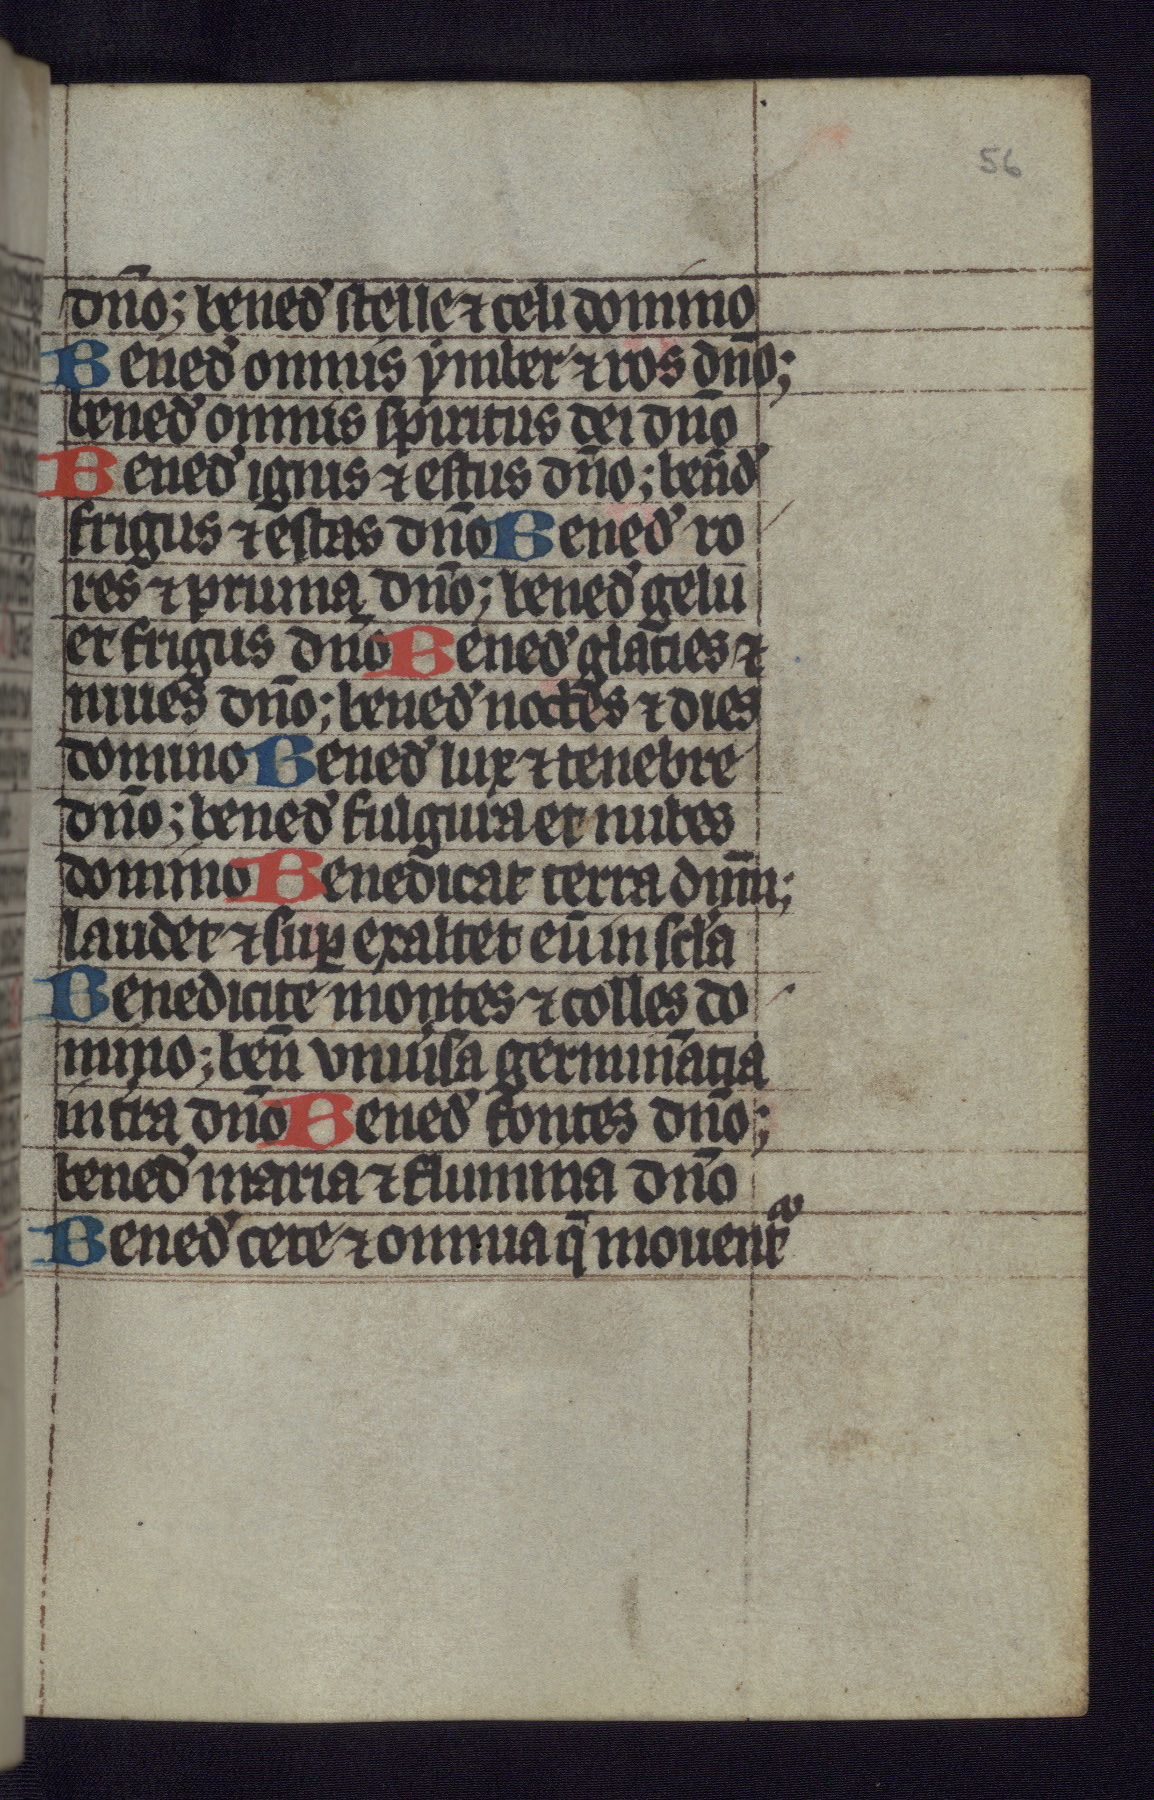 56
dn̄o; bened̉ stelle ⁊ celi domino
Bened̉ omnis ymber ⁊ ros dn̄o;
bened̉ omnis spiritus dei dn̄o
Bened̉ ignis ⁊ estus dn̄o; ben̄d̉
frigus ⁊ estas dn̄o Bened̉ ro
res ⁊ pruina dn̄o; bened̉ gelu
et frigus dn̄o Bened̉ glacies ⁊
niues dn̄o; bened̉ noctes ⁊ dies
domino Bened̉ lux ⁊ tenebre
dn̄o; bened̉ fulgura et nubes
domino Benedicat terra dn̄m;
laudet ⁊ suꝑ exaltet eū in scl̉a
Benedicite montes ⁊ colles do
mino; ben̄ vniu̓sa germinātia
in t̓ra dn̄o Bened̉ fontes dn̄o;
bened̉ maria ⁊ flumina dn̄o
Bened̉ cete ⁊ omnia q̄ mouent᷑